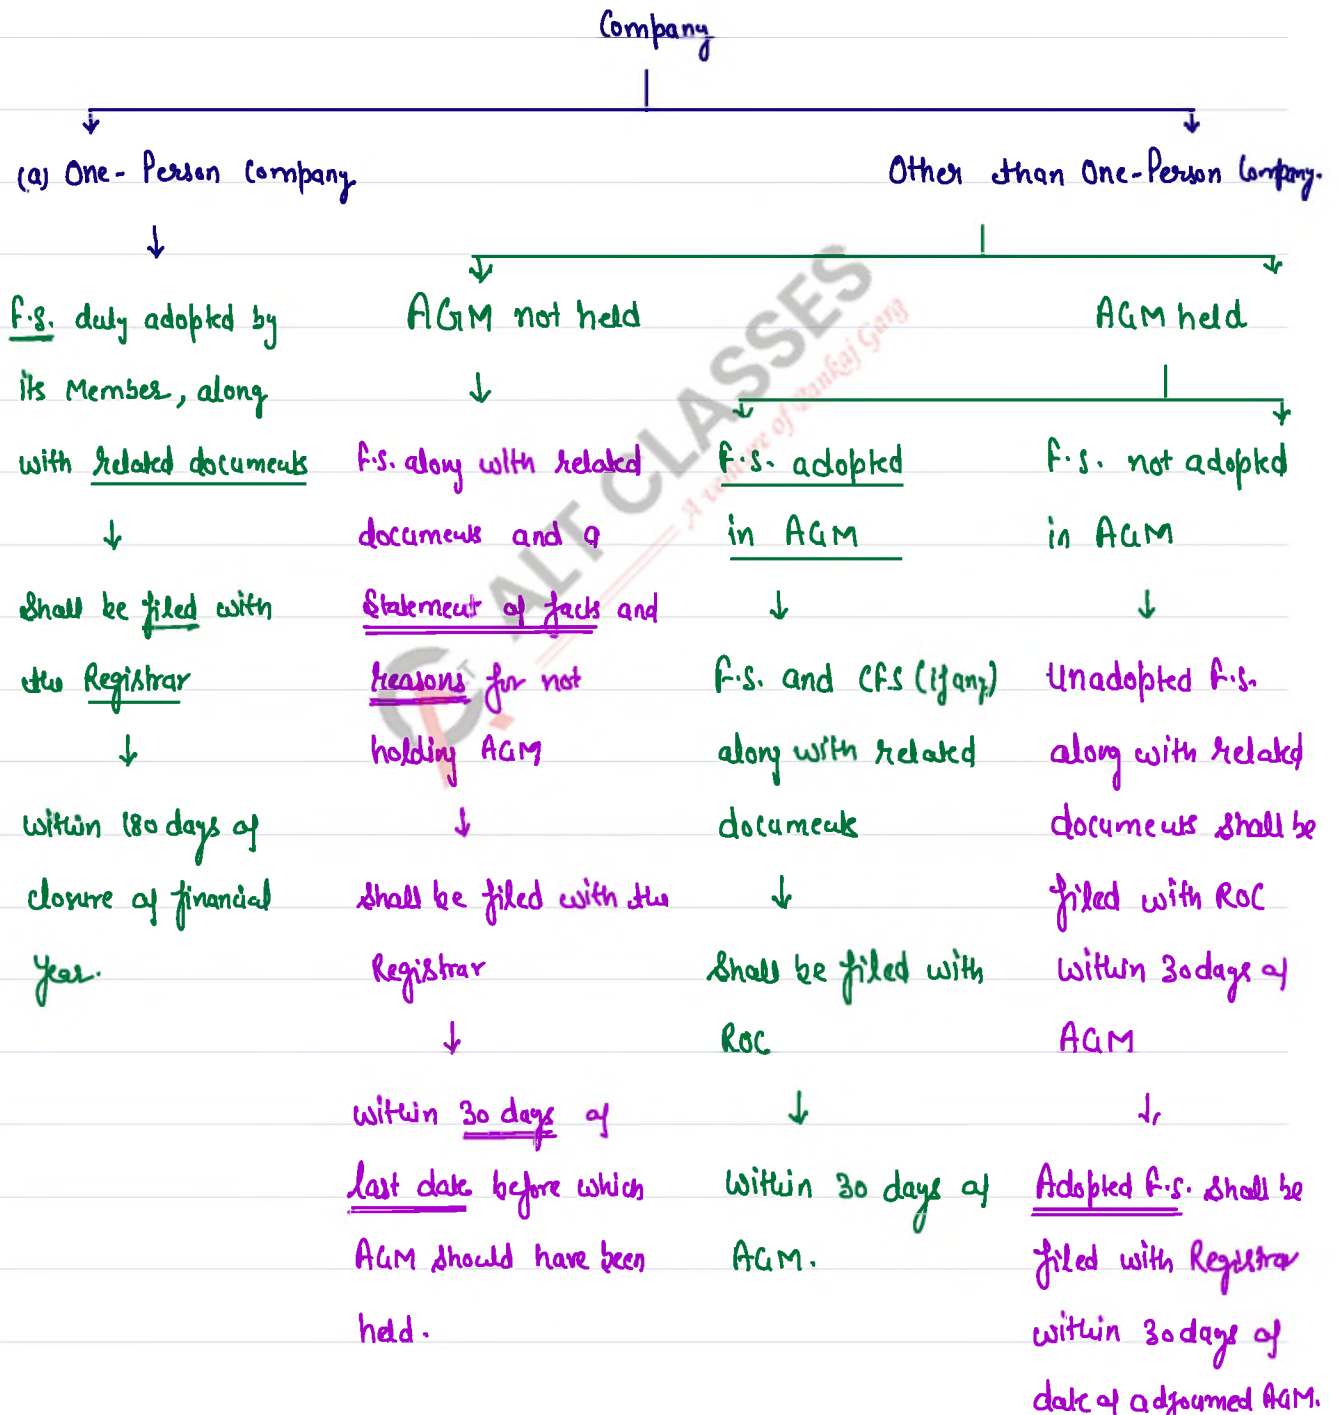 Company
(a) One-Person Company
Other than One-Person Company.
F.S. duly adopted by
its Member, along
with related documents
Shall be filed with
the Registrar
within 180 days of
closure of financial
Year.
AGM not held
F.S. along with related
documents and a
Statement of facts and
reasons for not
holding AGM
shall be filed with the
Registrar
within 30 days of
last date before which
AGM should have been
held.
AGM held
F.S. adopted
in AGM
F.S. and CFS (if any)
along with related
documents
Shall be filed with
ROC
Within 30 days of
AGM.
F.S. not adopted
in AGM
Unadopted F.S.
along with related
documents shall be
filed with ROC
within 30 days of
AGM
Adopted F.S. shall be
filed with Registrar
within 30 days of
date of adjourned AGM.
ALT CLASSES
A venture of Pankaj Garg